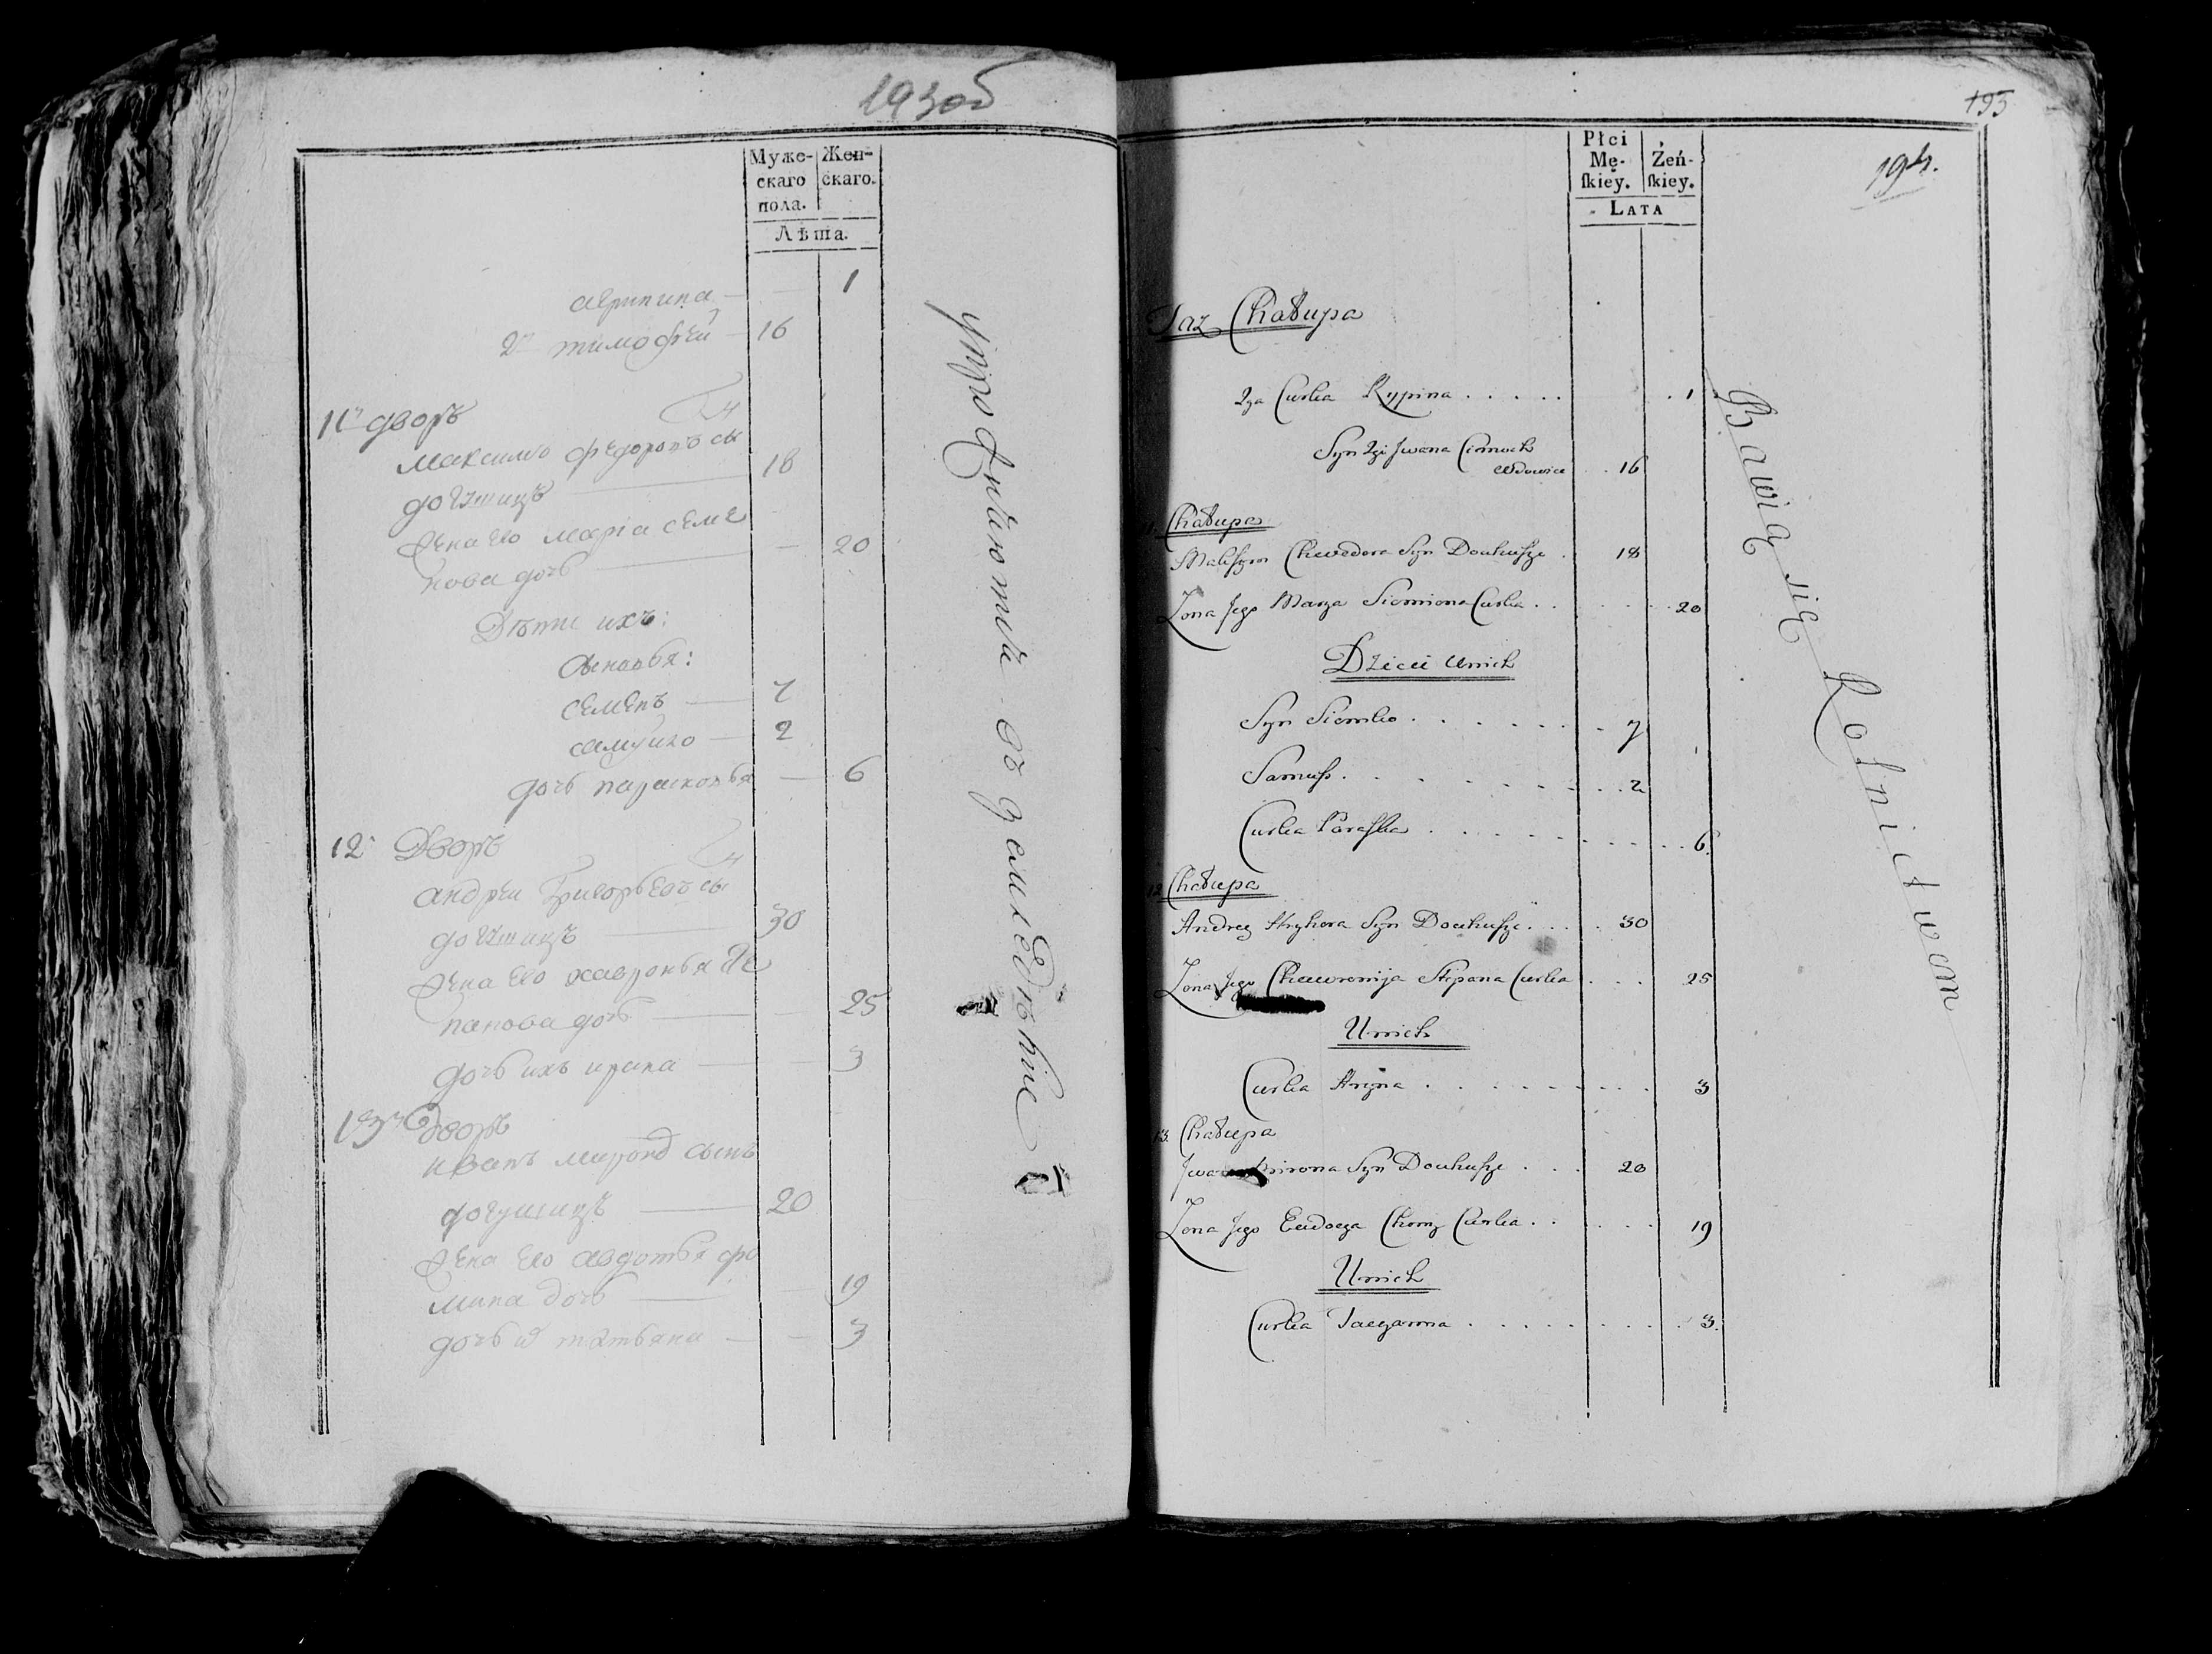 193об
Муже-
скаго
пола.
Жен-
скаго.
Лѣта.
агрипина — 1
2й тимофѣй — 16
11й дворъ
максимъ федоровъ сы
18
жена его марiа семе
нова дочь — 20
Дѣти ихъ:
сыновья:
семенъ — 7
самуило — 2
дочь парасковья — 6
12й Дворъ
андреи Григорьевъ сы
30
жена его хавронья Сте
панова дочь — 25
дочь ихъ ирина — 3
13й дворъ
иванъ миронов сынъ
20
жена его авдотья фо
мина дочь — 19
дочь их татьяна — 3
упражняются въ земледѣліе
195
194.
Płci
Mę-
skiey.
Żeń-
skiey.
Lata
Taż Chałupa
2ga Curka Rypina . . . . . 1
Syn 2gi Jwana Cimoch
Wdowiec . . 16
11. Chałupa
Maksym Chwedora Syn . 18
Zona Jego Marya Siemiona Curka . . 20
Dzieci Unich
Syn Siemko . . . . 7
Samuś . . . . 2
Curka Paraska . . . . 6.
12 Chałupa
Andrey Hryhora Syn . . . 30
Zona Jego Chawronija Stepana Curka . . . 25
Unich
Curka Aryna . . . . 3
13. Chałupa
Jwan Mirona Syn . . . 20
Zona Jego Eudocya Chomy Curka . . . 19
Unich
Curka Tacyanna . . . . 3.
Bawią się Rolnictwem